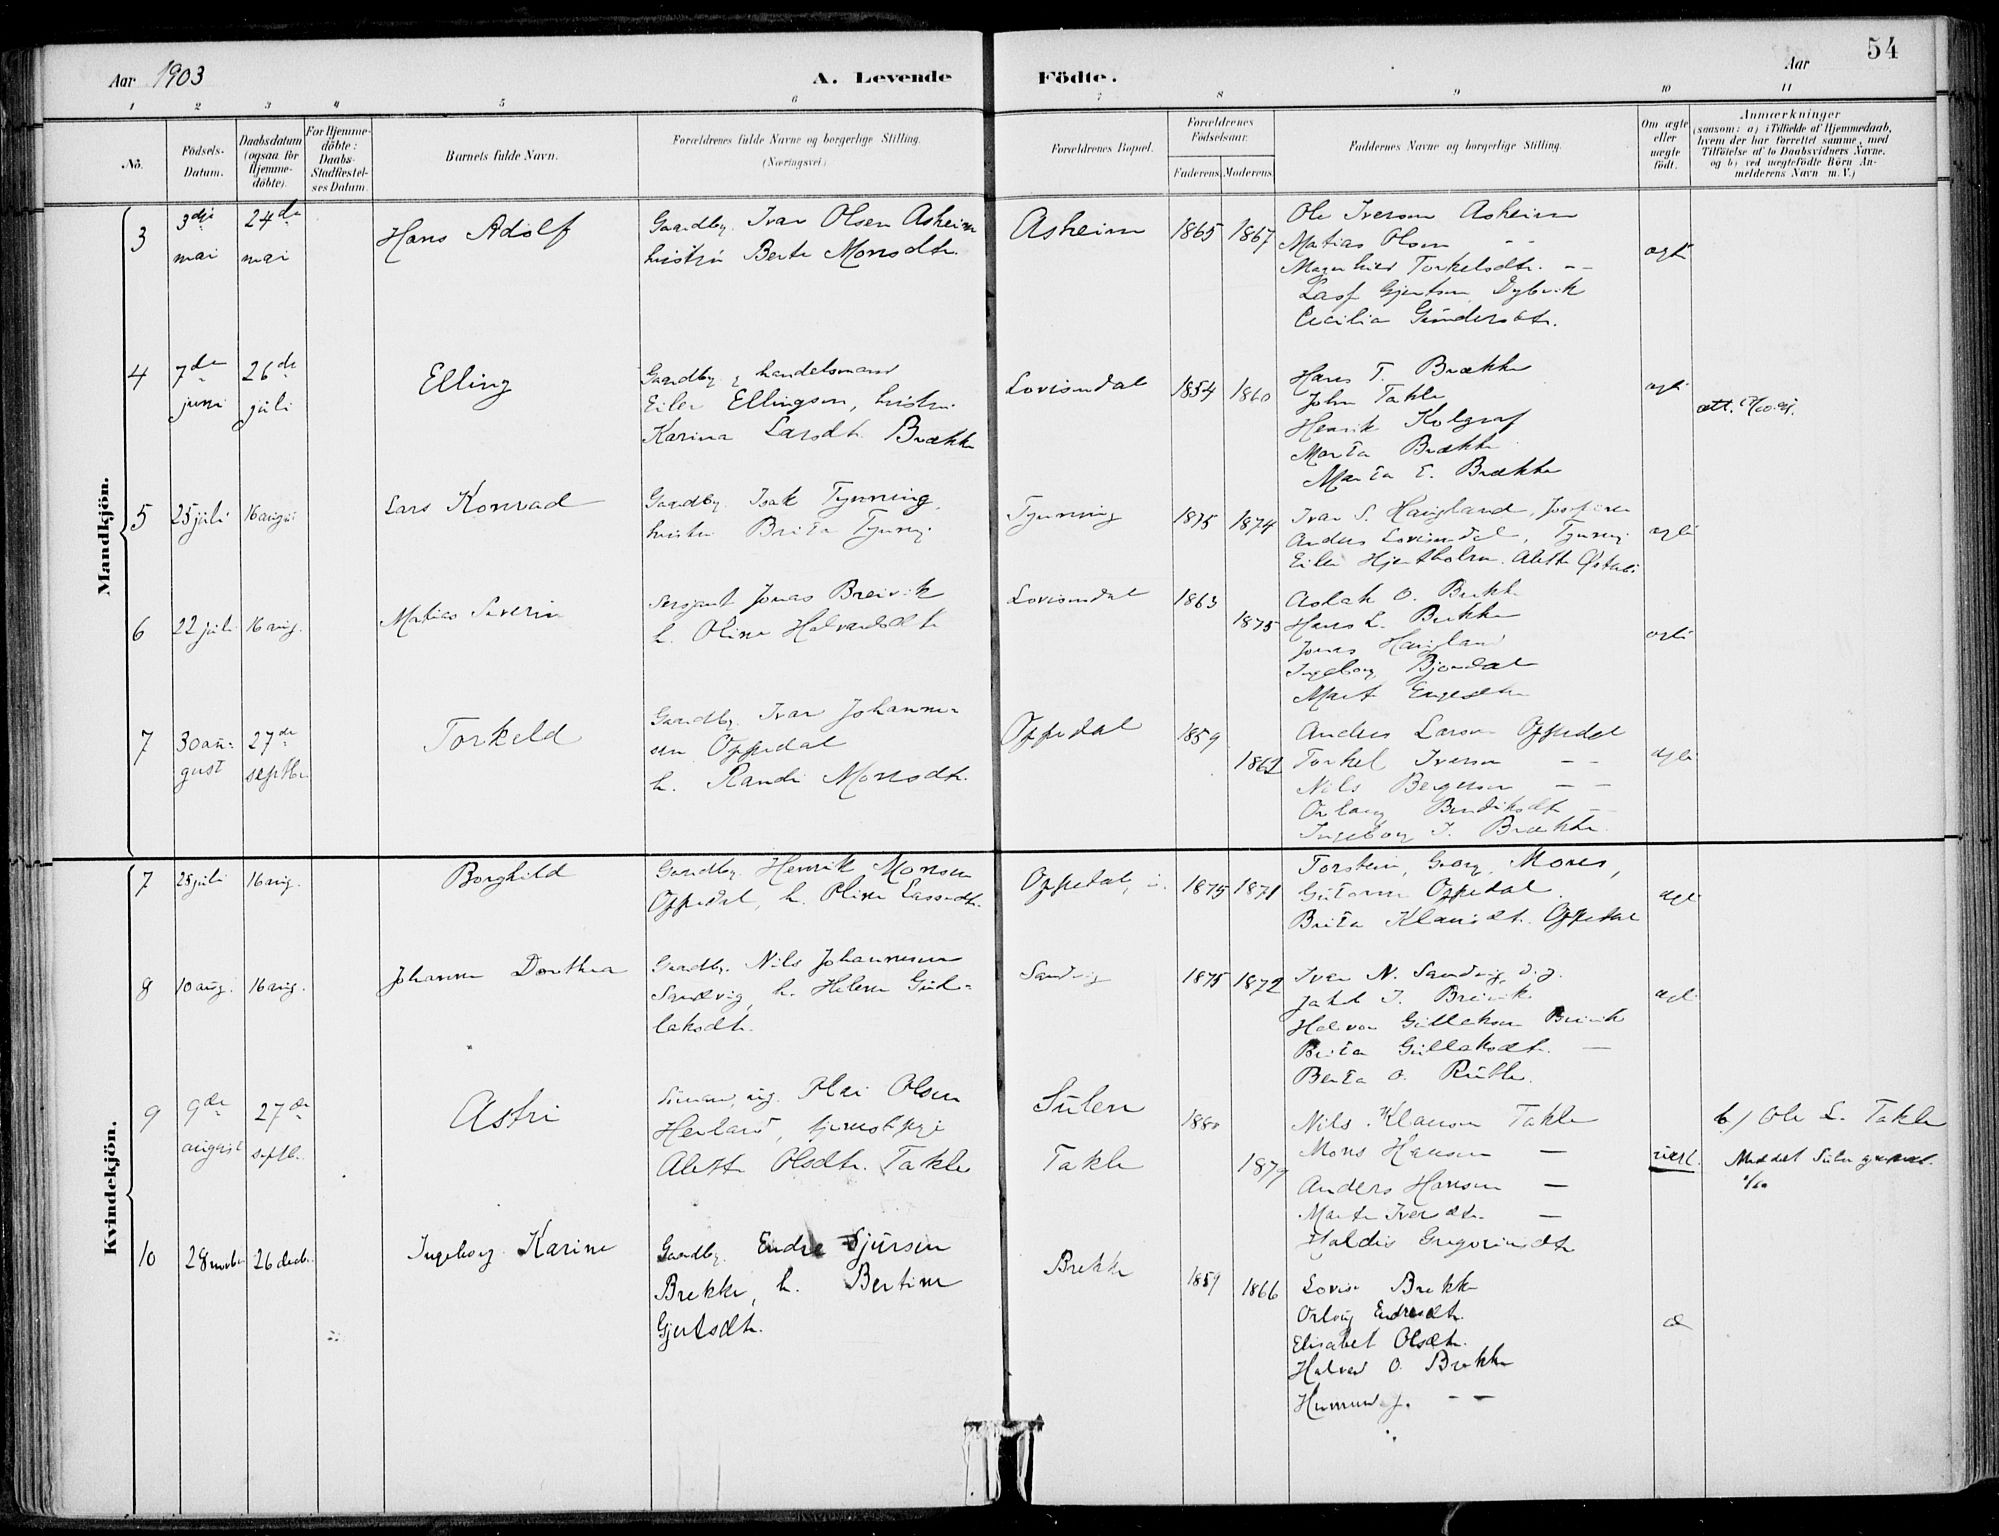 Aar 1903
A. Levende Födte.
Aar
54
1 2 3 4 5 6 7 8 9 10 11
No. Födsels-Datum. Daabsdatum (ogsaa for Hjemme-döbte). For Hjemme-döbte: Daabs-Stadfæstel-ses Datum. Barnets fulde Navn. Forældrenes fulde Navne og borgerlige Stilling. (Næringsvei) Forældrenes Bopæl. Forældrenes Födselsaar. Faderens. Moderens. Faddernes Navne og borgerlige Stilling. Om ægte eller uægte födt. Anmærkninger (saasom: a) i Tilfælde af Hjemmedaab, hvem der har forrettet samme, med Tilföielse af to Daabsvidners Navne, og b) ved uægtefödte Börn An-melderens Navn m. V.)
Mandkjön.
3 3die mai 24de mai Hans Adolf
Gaardbr. Ivar Olsen Asheim
hustru Berte Monsdtr.
Asheim 1865 1867
Ole Iversen Asheim
Matias Olsen - -
Magnhild Torkelsdtr. - -
Lasse Gjertsen Dybvik
Cecilia Gundersdtr.
ægte
4 7de juni 26de juli Elling
Gaardbr. & handelsmand
Eiler Ellingsen, hustru
Karina Larsdtr. Brække
Lovisendal 1854 1860
Hans T. Brække
John Takle
Henrik Kolgraf
Marta Brække
Marta E. Brække
ægte
5 25 juli 16 august Lars Konrad
Gaardbr. Isak Tynning,
hustru Brita Tynning
Tynning 1875 1874
Ivar S. Haugland,
Anders Lovisendal, Tynning
Eiler Hjertholm, Alette
ægte
6 22 juli 16 aug. Matias Severin
Sersjant Jonas Breivik
h. Oline Halvardsdtr
Lovisendal 1863 1875
Aslak O. Brekke
Hans L. Brekke
Jonas Haugland
Ingeborg Bjordal
Marta Engesæter
ægte
7 30 august 27de septbr. Torkeld
Gaardbr. Ivar Johannes-
sen Oppedal
h. Randi Monsdtr.
Oppedal 1859 1862
Anders Larsen Oppedal
Torkel Iversen - -
Nils Bergesen - -
Bendiksdtr -
Ingeborg I. Brække
ægte
Kvindekjön.
7 25 juli 16 aug. Borghild
Gaardbr. Henrik Monsen
Oppedal, h. Oline Lassesdtr.
Oppedal, 1875 1871
Torstein, Georg, Mons,
Guttorm Oppedal
Brita Klausdtr. Oppedal
ægte
8 10 aug. 16 aug. Johanne Dorthea
Gaardbr. Nils Johannesen
Sandvig, h. Helene Gul-
laksdtr.
Sandvig 1875 1872
Ivar N. Sandvig,
Jakob I. Breivik
Halvor Gullaksen Breivik
Brita Gullaksdtr. -
Berta O. Rutle.
ægte
9 9de august 27de septb. Astri
ug. Olai Olsen
Herland, tjenestpige
Alette Olsdtr. Takle
Sulen
Takle
1880 1879
Nils Klausen Takle
Mons Hansen -
Anders Hansen -
Marta Iversdtr. -
Haldis Gregoriusdtr
uægt.
b/ Ole L. Takle
Meddelt Sulen
10 28 novbr. 26 decbr. Ingeborg Karine
Gaardbr. Endre Sjursen
Brekke, h. Bertine
Gjertsdtr.
Brekke 1859 1866
Lovise Brekke
Endresdtr.
Elisabet Olsdtr.
Halvard O. Brekke
- -
æ